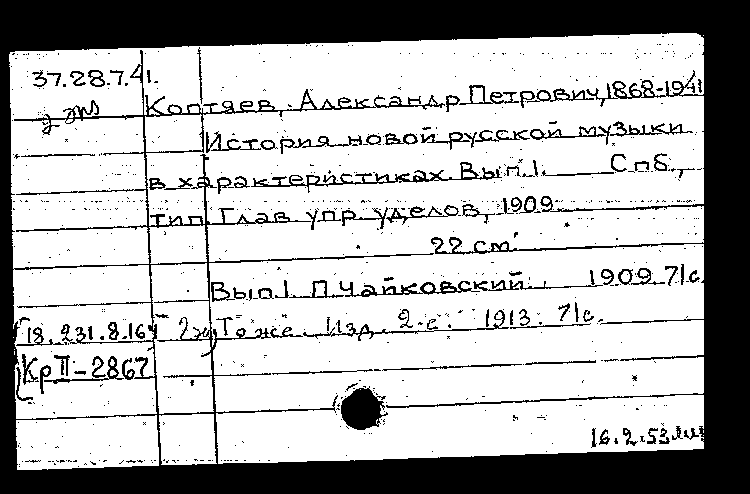 37.28.7.41.
2 экз Коптяев, Александр Петрович, 1868-1941
История новой русской музыки
в характеристиках. Вып. 1. Спб.,
тип. Глав. упр. уделов, 1909.
22 см.
Вып. 1. П. Чайковский. 1909. 71 с.
18.231.8.164 То же. Изд. 2-е. 1913. 71 с.
Кр II-2867
16.2.53